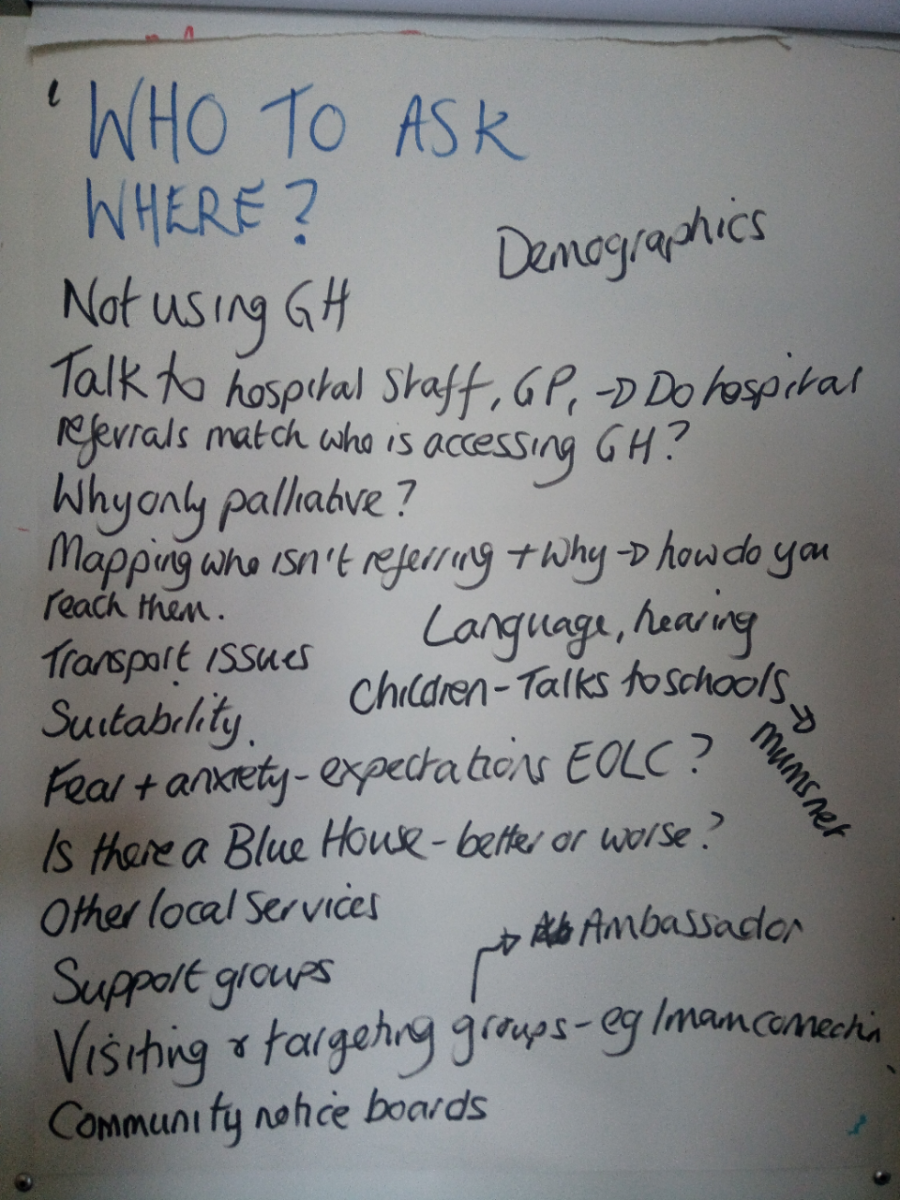 WHO TO ASK
WHERE?
Demographics
Not using GH
Talk to hospital staff, GP, → Do hospital
referrals match who is accessing GH?
Why only palliative?
Mapping who isn't referring + why → how do you
reach them.
Language, hearing
Transport issues
Children - Talks to schools →
mumsnet
Suitability.
Fear + anxiety - expectations EOLC?
Is there a Blue House - better or worse?
Other local services
→ Ambassador
Support groups
Visiting & targeting groups - eg Imam
Community notice boards